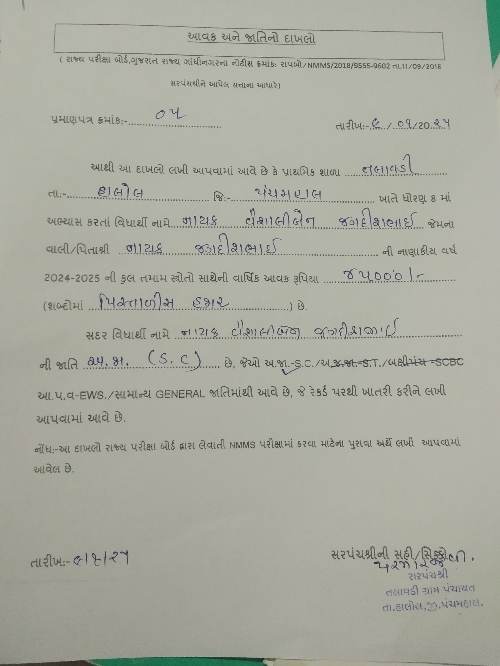 આવક અને જાતિનો દાખલો
( રાજ્ય પરીક્ષા બોર્ડ,ગુજરાત રાજ્ય ગાંધીનગરના નોટીસ ક્રમાંક: રાપબો/NMMS/2018/9555-9602 તા.11/09/2018
સરપંચશ્રીને આપેલ સત્તાના આધારે)
પ્રમાણપત્ર ક્રમાંક:- ૦૫
તારીખ:- ૬ / ૦૧ /20.૨૫
આથી આ દાખલો લખી આપવામાં આવે છે કે પ્રાથમિક શાળા તલાવડી
તા:- હાલોલ જિ:- પંચમહાલ ખાતે ધોરણ ૮ માં
અભ્યાસ કરતાં વિધાર્થી નામે નાયક વૈશાલીબેન જગદીશભાઈ જેમના
વાલી/પિતાશ્રી નાયક જગદીશભાઈ ની નાણાકીય વર્ષ
2024-2025 ની કુલ તમામ સ્રોતો સાથેની વાર્ષિક આવક રૂપિયા ૪૫૦૦૦/-
(શબ્દોમાં પિસ્તાળીસ હજાર ) છે.
સદર વિધાર્થી નામે નાયક વૈશાલીબેન જગદીશભાઈ
ની જાતિ અ.જા. (S.C) છે, જેઓ અ.જા.-S.C./અ.જ.જા.-S.T./બક્ષીપંચ-SCBC
આ.પ.વ-EWS./સામાન્ય GENERAL જાતિમાંથી આવે છે, જે રેકર્ડ પરથી ખાતરી કરીને લખી
આપવામાં આવે છે.
નોંધ:-આ દાખલો રાજ્ય પરીક્ષા બોર્ડ દ્વારા લેવાતી NMMS પરીક્ષામાં કરવા માટેના પુરાવા અર્થે લખી આપવામાં
આવેલ છે.
તારીખ:-
સરપંચશ્રીની સહી/સિક્કો
સરપંચશ્રી
તલાવડી ગ્રામ પંચાયત
તા.હાલોલ,જી.પંચમહાલ.